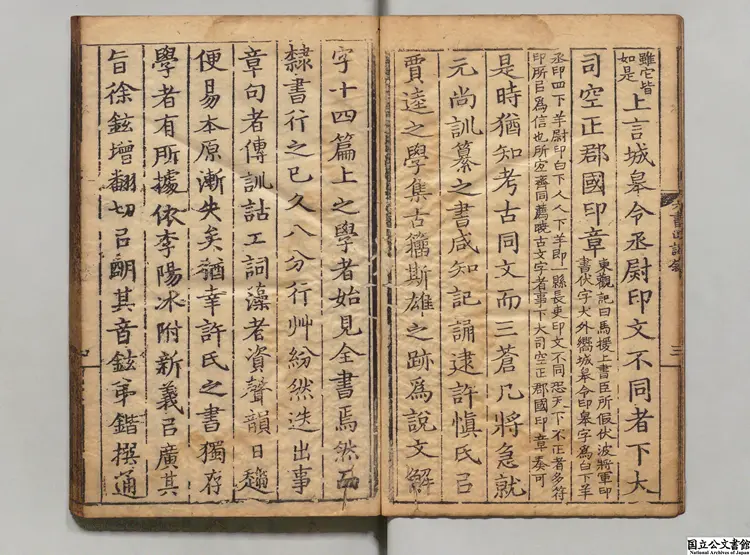 雖它皆
如是
上言城皋令丞尉印文不同者下大
司空正郡國印章
東觀記曰馬援上書臣所假伏波將軍印
書伏字犬外嚮城皋令印皋字為白下羊
丞印四下羊尉印白下人人下羊即一縣長吏印文不同恐天下不正者多符
印所㠯為信也所宜齊同薦曉古文字者事下大司空正郡國印章奏可
是時猶知考古同文而三蒼凡將急就
元尚訓纂之書咸知記誦逮許慎氏㠯
賈逵之學集古籀斯雄之跡爲說文解
字十四篇上之學者始見全書焉然而
隸書行之已久八分行艸紛然迭出事
章句者傳訓詁工詞藻者資聲韻日趨
便易本原漸失矣猶幸許氏之書獨存
學者有所據依李陽冰附新義㠯廣其
旨徐鉉增翻切㠯朙其音鉉弟鍇撰通
国立公文書館
National Archives of Japan